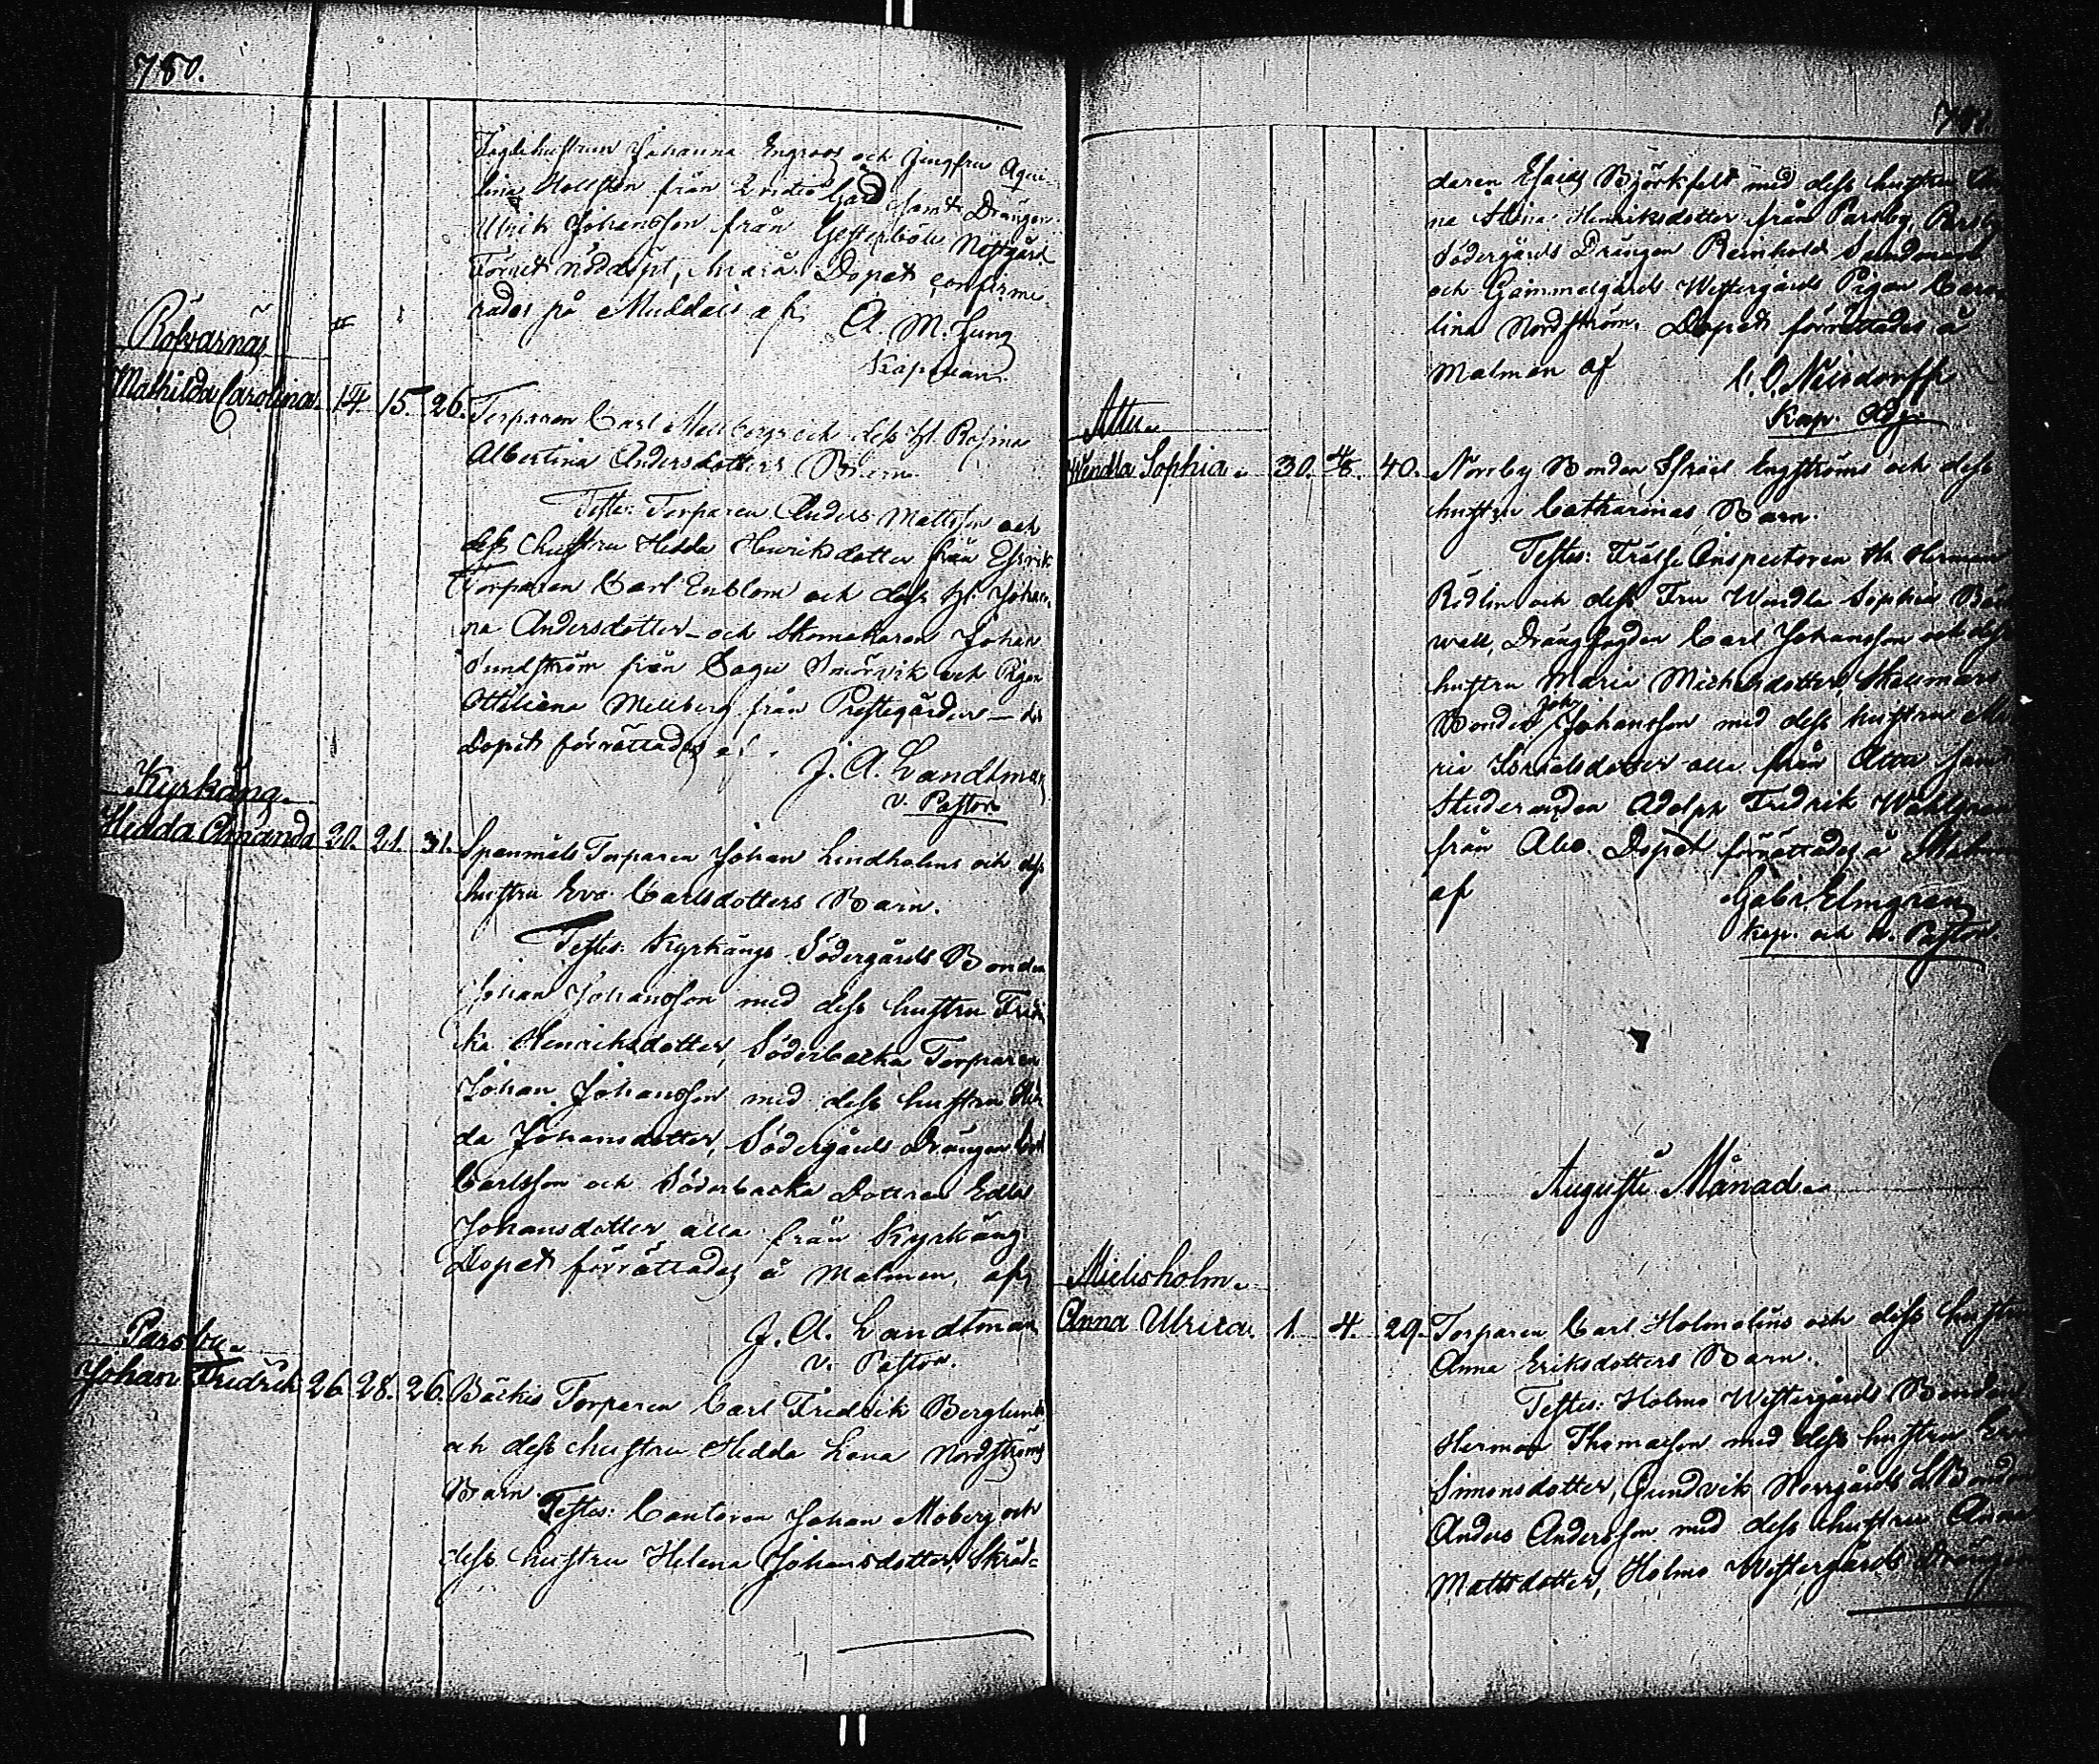 780.
Fogdehustrun Johanna Engroos och Jungfru Aqui-
lina Hollsten från Gård samt Drängen
Ulrik Johansson från Gesterböle Nystgård
Förut döpt, Dopet confirme-
rades på Muddais af. A. M. Jung
Kapellan.
Röfvarnäs
Mathilda Carolina. 14. 15. 26. Torparen Carl Mellbergs och dess H. Rosina
Albertina Andersdotters Barn.
Testes: Torparen Anders Mattsson och
dess hustru Hedda Henriksdotter från
Torparen Carl Enblom och dess H. Johan-
na Andersdotter och Skomakaren Johan
Sundström från Sagu Smörvik och Pigan
Ottiliana Mellberg från Prestegården
Dopet förrättades af
J. A. Landtman
v. Pastor
Kyrkäng.
Hedda Amanda 20. 21. 31. Spanmåls Torparen Johan Lindholms och dess
hustru Eva Carlsdotters Barn.
Testes: Kyrkängs Södergårds Bonden
Johan Johansson med dess hustru Fredri
ka Henriksdotter, Söderbacka Torparen
Johan Johansson med dess hustru Hed
da Johansdotter, Södergårds Drängen Carl
Carlsson och Söderbacka Dottren Edla
Johansdotter alla från Kyrkäng
Dopet förrättades å Malmen, af
J. A. Landtman
v. Pastor.
Parsby.
Johan Fredrik 26. 28. 26. Bäckis Torparen Carl Fredrik Berglunds
och dess hustru Hedda Lena Nordströms
Barn.
Testes: Cantoren Johan Moberg och
dess hustru Helena Johansdotter, Skräd=
781.
daren Esaias Björkfelt med dess hustru An
na Stina Henriksdotter från Parsby, Parsby
Södergårds Drängen Reinhold Sandman
och Gammelgårds Westergårds Pigan Caro-
lina Nordström. Dopet förrättades å
Malmen af C. O. Neisdorff
Kap. Adj.
Attu.
Wendla Sophia. 30. 4/8. 40. Norrby Bonden Isräel Engströms och dess
hustru Catharinas Barn.
Testes: Frälse Inspectoren Hr Herman
Rödlin och dess Fru Wendla Sophia
wall, Drängfogden Carl Johansson och dess
hustru Maria Michelsdotter, Skallmars
Bonden Joh. Johansson med dess hustru Ma
ria Israelsdotter alla från Attu samt
Studeranden Adolph Fredrik Wahlgren
från Åbo. Dopet förrättades å Malmen
af Gabr. Elmgren
Kap. och v. Pastor.
Augusti Månad.
Mielisholm.
Anna Ulrica. 1. 4. 29. Torparen Carl Holmelins och dess hustru
Anna Eriksdotters Barn.
Testes: Holmo Westergårds Bonden
Herman Thomasson med dess hustru
Simonsdotter, Gundvik Norrgårds Bonden
Anders Andersson med dess hustru Anna
Mattsdotter, Holmo Westergårds Drängen